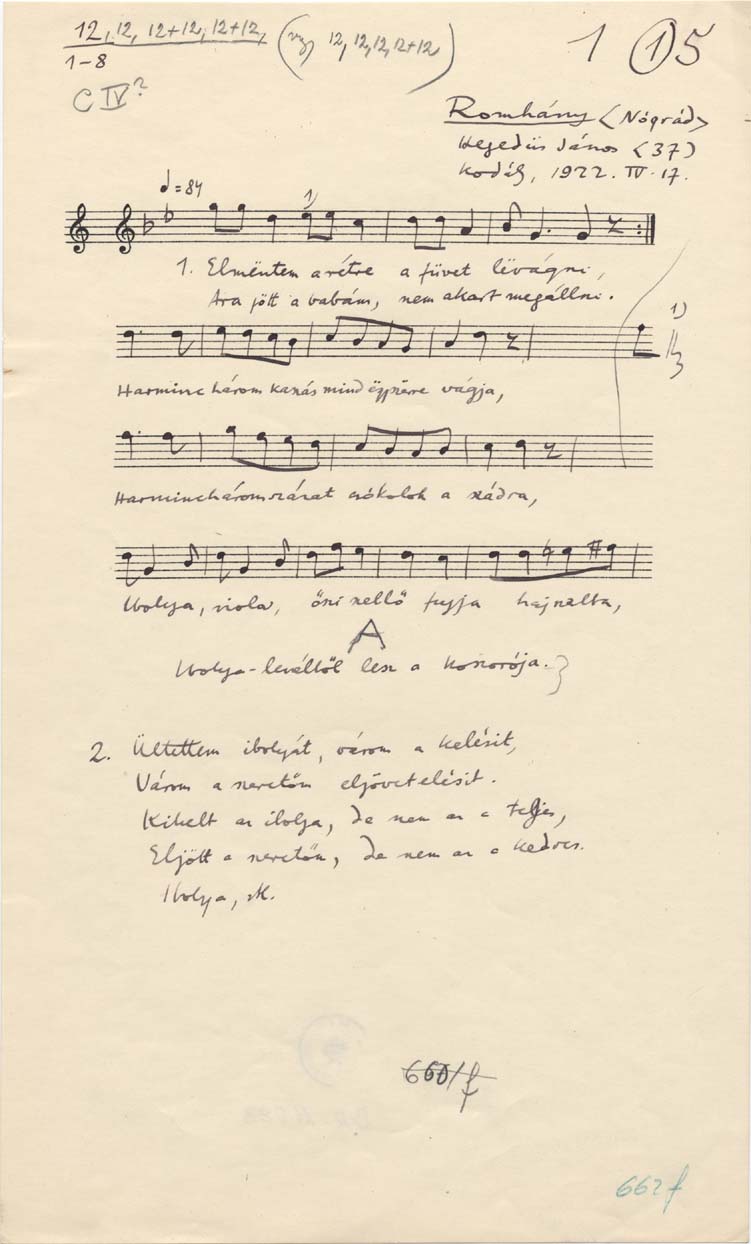 12, 12, 12+12, 12+12, (vagy 12, 12, 12, 12+12)
1-8
C IV?
1 ① 5
Romhány <Nógrád>
Hegedüs János <37>
Kodály, 1922. IV. 17.
♩=84
1)
1. Elmëntem a rétre a füvet lëvágni,
Ara jött a babám, nem akart megállni.
1)
Harminchárom kaszás mind ëgyszërre vágja,
Harminchárom százat csókolok a szádra,
Ibolya, viola, őszi szellő fujja hajnalba,
A
Ibolya-levéltől lesz a koszorója.
2. Ültettem ibolyát, várom a kelésit,
Várom a szeretőm eljövetelésit.
Kikelt az ibolya, de nem az a teljes,
Eljött a szeretőm, de nem az a kedves.
Ibolya, stb.
660/f
662f